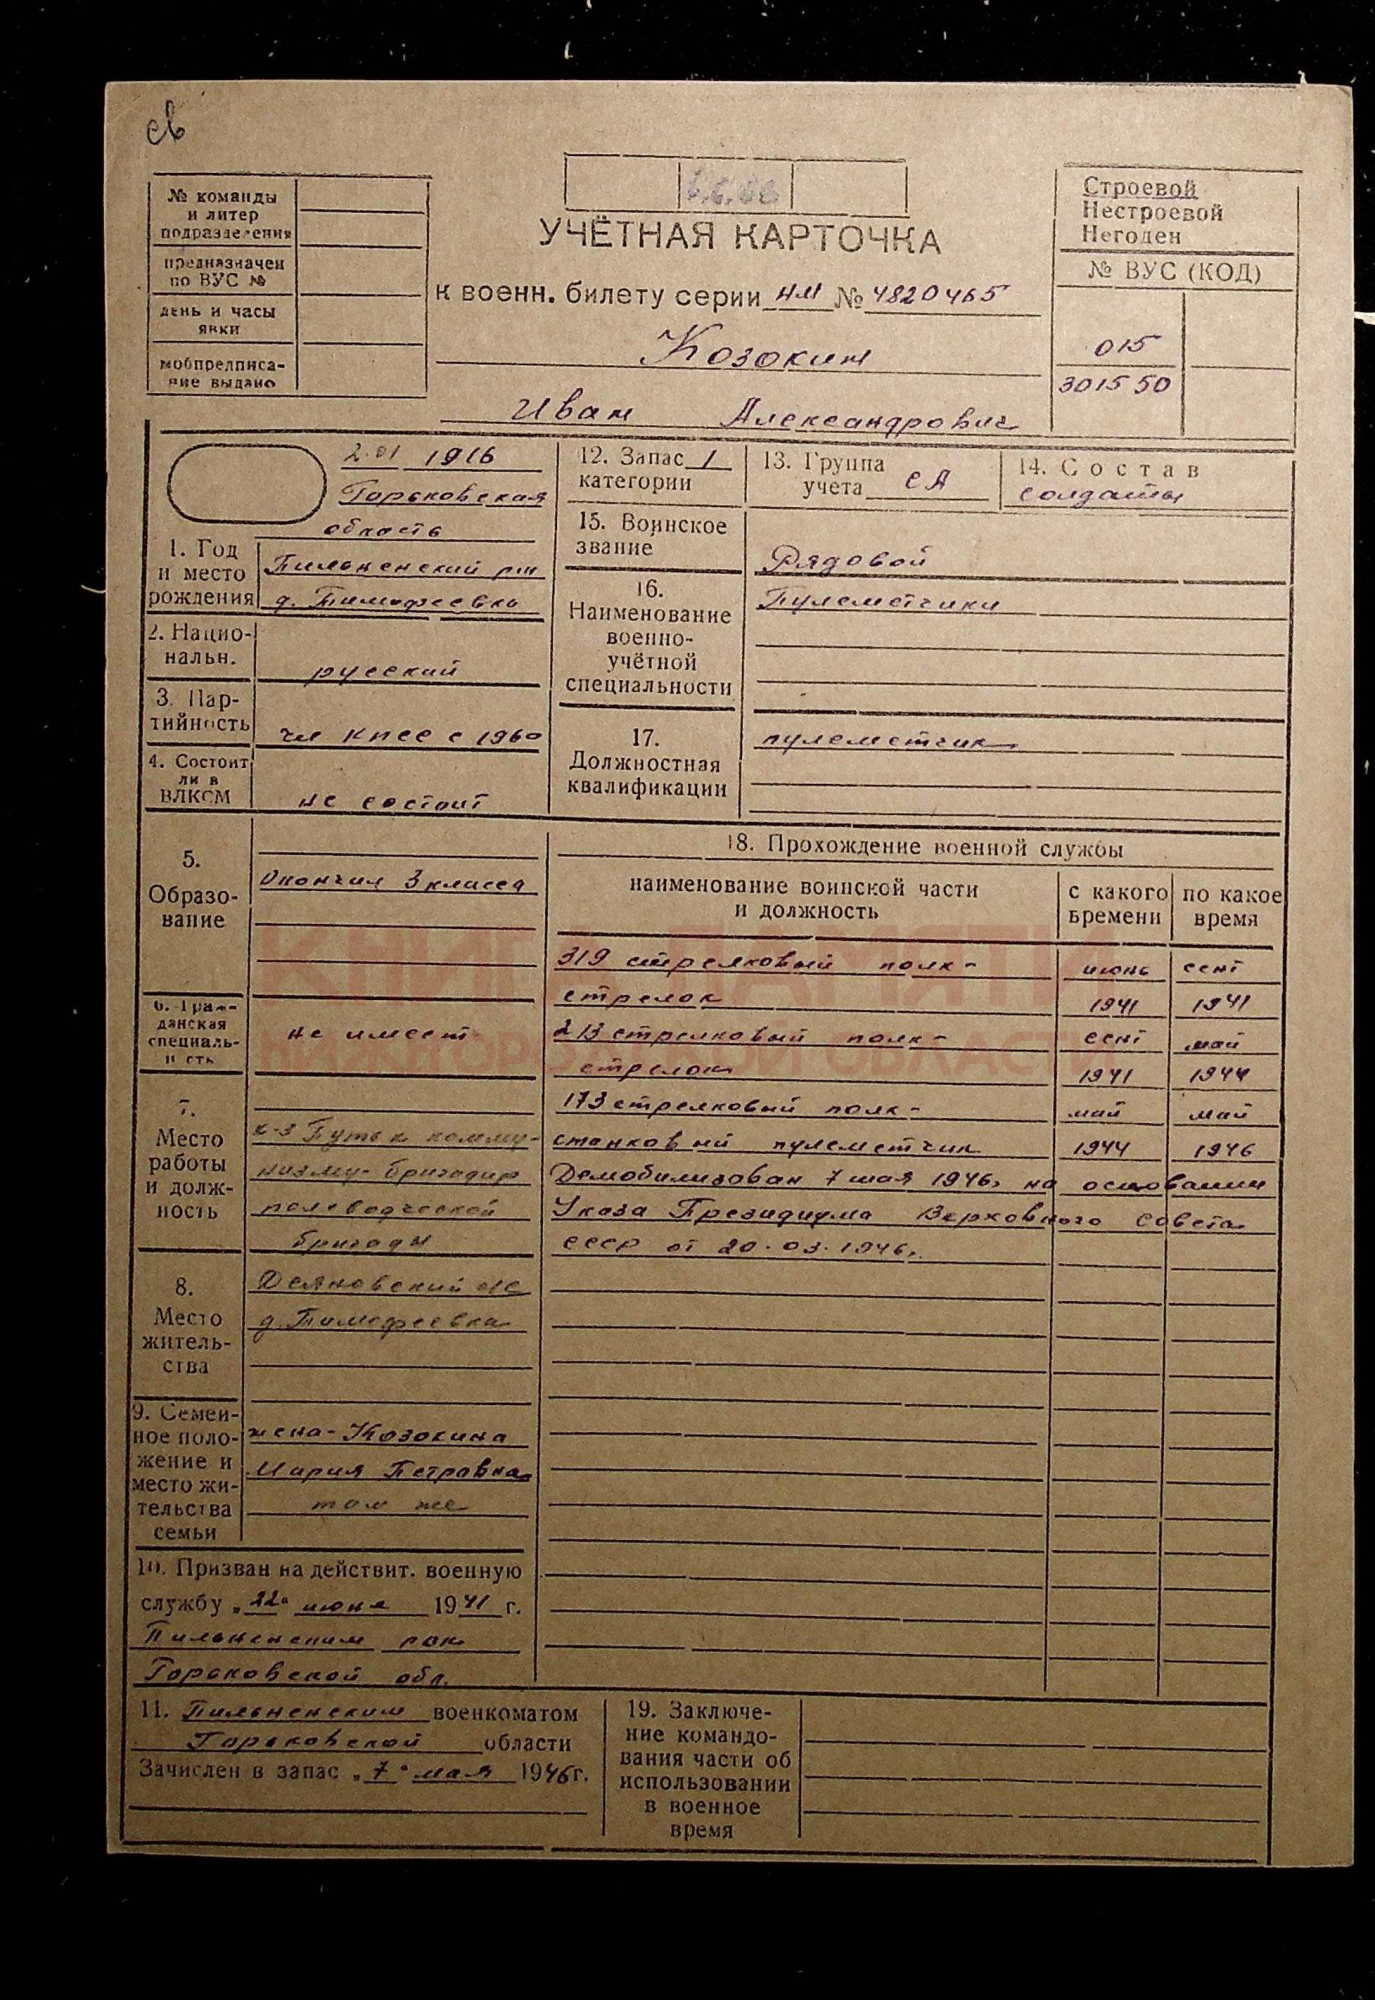 св
№ команды
и литер
подразделения
предназначен
по ВУС №
день и часы
явки
мобпредписа-
ние выдано
УЧЁТНАЯ КАРТОЧКА
к военн. билету серии НМ № 4820465
Козокин
Иван Александрович
Строевой
Нестроевой
Негоден
№ ВУС (КОД)
015
301550
2.01 1916
Горьковская
область
1. Год
и место
рождения
Пильненский р-н
д. Тимофеевка
2. Нацио-
нальн.
русский
3. Пар-
тийность
чл КПСС с 1960
4. Состоит
ли в
ВЛКСМ
не состоит
12. Запас 1
категории
13. Группа
учета СА
14. Состав
солдаты
15. Воинское
звание
Рядовой
16.
Наименование
военно-
учётной
специальности
Пулеметчики
17.
Должностная
квалификации
пулеметчик
5.
Образо-
вание
Окончил 3 класса
6. Граж-
данская
специаль-
н сть
не имеет
7.
Место
работы
и долж-
ность
к-з Путь к комму-
низму - бригадир
полеводческой
бригады
8.
Место
житель-
ства
Деяновский с/с
д. Тимофеевка
9. Семей-
ное поло-
жение и
место жи-
тельства
семьи
жена - Козокина
Мария Петровна
там же
10. Призван на действит. военную
службу „22“ июня 1941 г.
Пильненским рвк
Горьковской обл.
11. Пильненским военкоматом
Горьковской области
Зачислен в запас „7“ мая 1946 г.
18. Прохождение военной службы
наименование воинской части
и должность
с какого
времени
по какое
время
319 стрелковый полк - июнь сент
стрелок 1941 1941
213 стрелковый полк - сент май
стрелок 1941 1944
173 стрелковый полк - май май
станковый пулеметчик 1944 1946
Демобилизован 7 мая 1946г на основании
Указа Президиума Верховного Совета
СССР от 20.03.1946г.
19. Заключе-
ние командо-
вания части об
использовании
в военное
время
КНИГА ПАМЯТИ
НИЖЕГОРОДСКОЙ ОБЛАСТИ